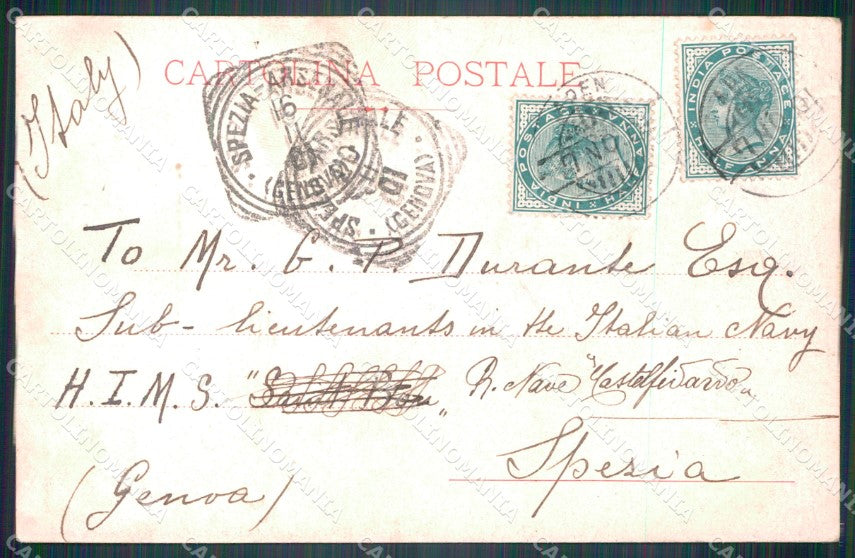 (Italy)
CARTOLINA POSTALE
SPEZIA-ARSENALE
16
(GENOVA)
SPEZIA
01
(GENOVA)
INDIA POSTAGE
HALF ANNA
INDIA POSTAGE
HALF ANNA
To Mr. G. P. Durante Esq.
Sub-lieutenants in the Italian Navy
H.I.M.S. " „ R. Nave "Castelfidardo„
Spezia
(Genova)
CARTOLINOMANIA